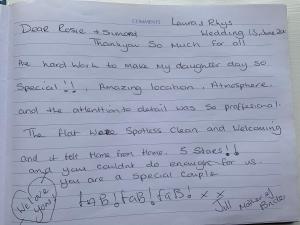 COMMENTS
Laura & Rhys
Dear Rosie & Simond
Wedding 13, June 20
Thankyou So Much for all
the hard work to make my daughter day so
Special!!, Amazing location, Atmosphere,
and the attenition to detail was so proffesional.
The flat were Spotless Clean and Welcoming
and it felt Home from Home. 5 Stars!!
and you couldnt do enough for us.
You are a special Couple
We Love you!
faB! faB! faB! x x
Jill Mother of
Bride